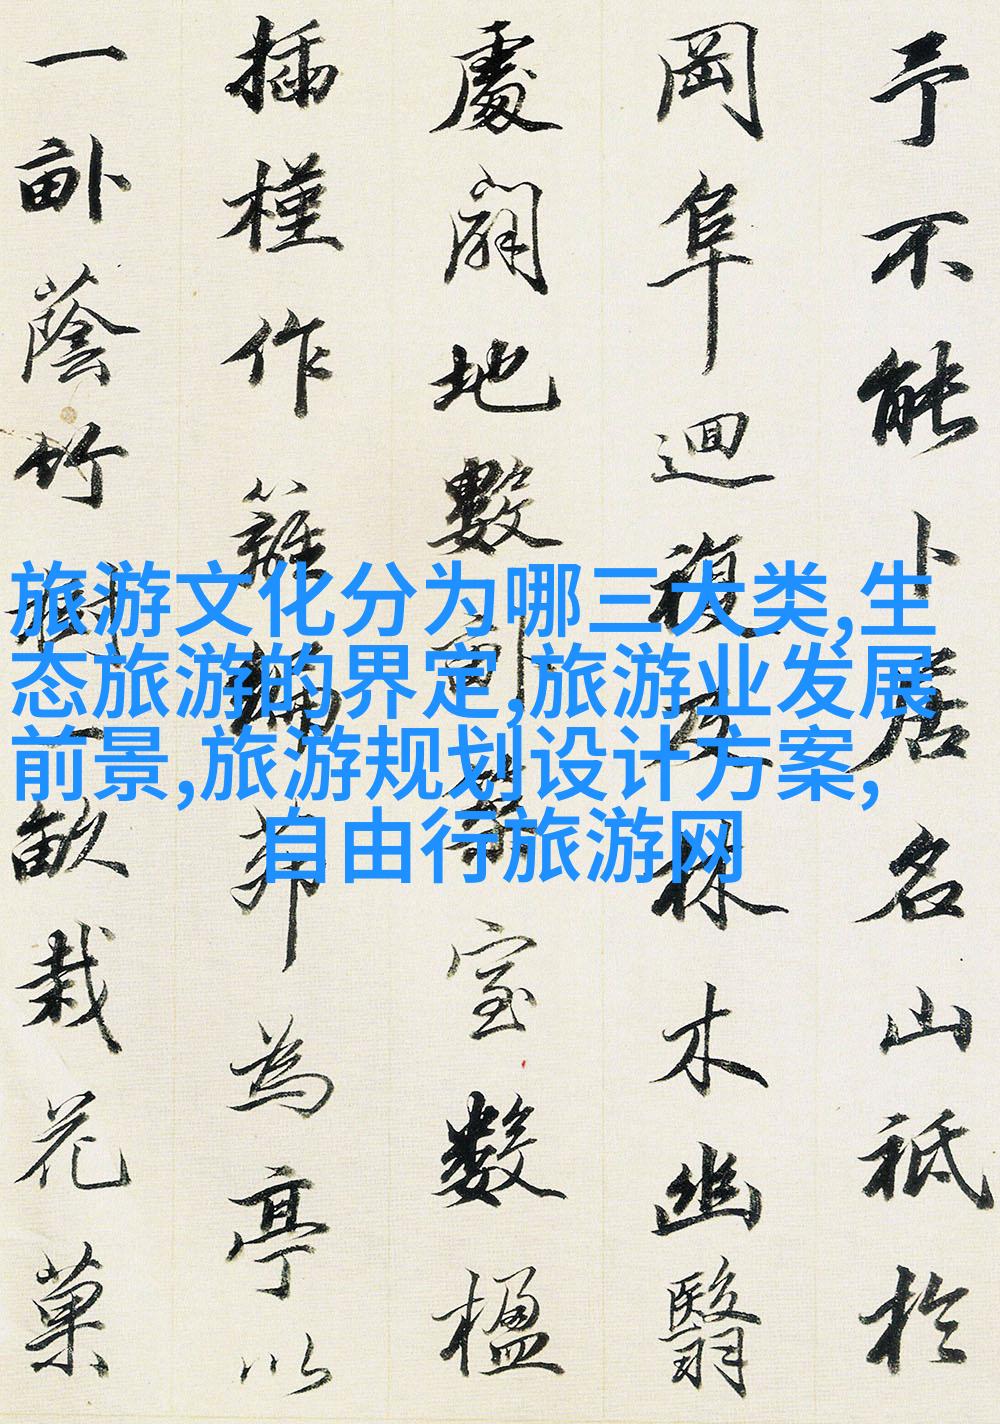 予不能卜居名山祗於
岡阜迴複及林木幽翳
處闢地數畝築室數楹
插槿作籬編茆為亭以
一畝蔭竹樹一畝栽花菓
旅游文化分为哪三大类,生
态旅游的界定,旅游业发展
前景,旅游规划设计方案,
自由行旅游网